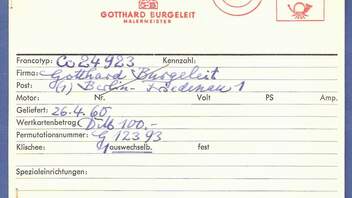 GOTTHARD BURGELEIT
MALERMEISTER
Francotyp: Cc 24923 Kennzahl:
Firma: Gotthard Burgeleit
Post: (1) Berlin-Friedenau 1
Motor: Nr. Volt PS Amp.
Geliefert: 26.4.60.
Wertkartenbetrag: DM 100,-
Permutationsnummer: G 1293
Klischee: auswechselb. fest
Spezialeinrichtungen: